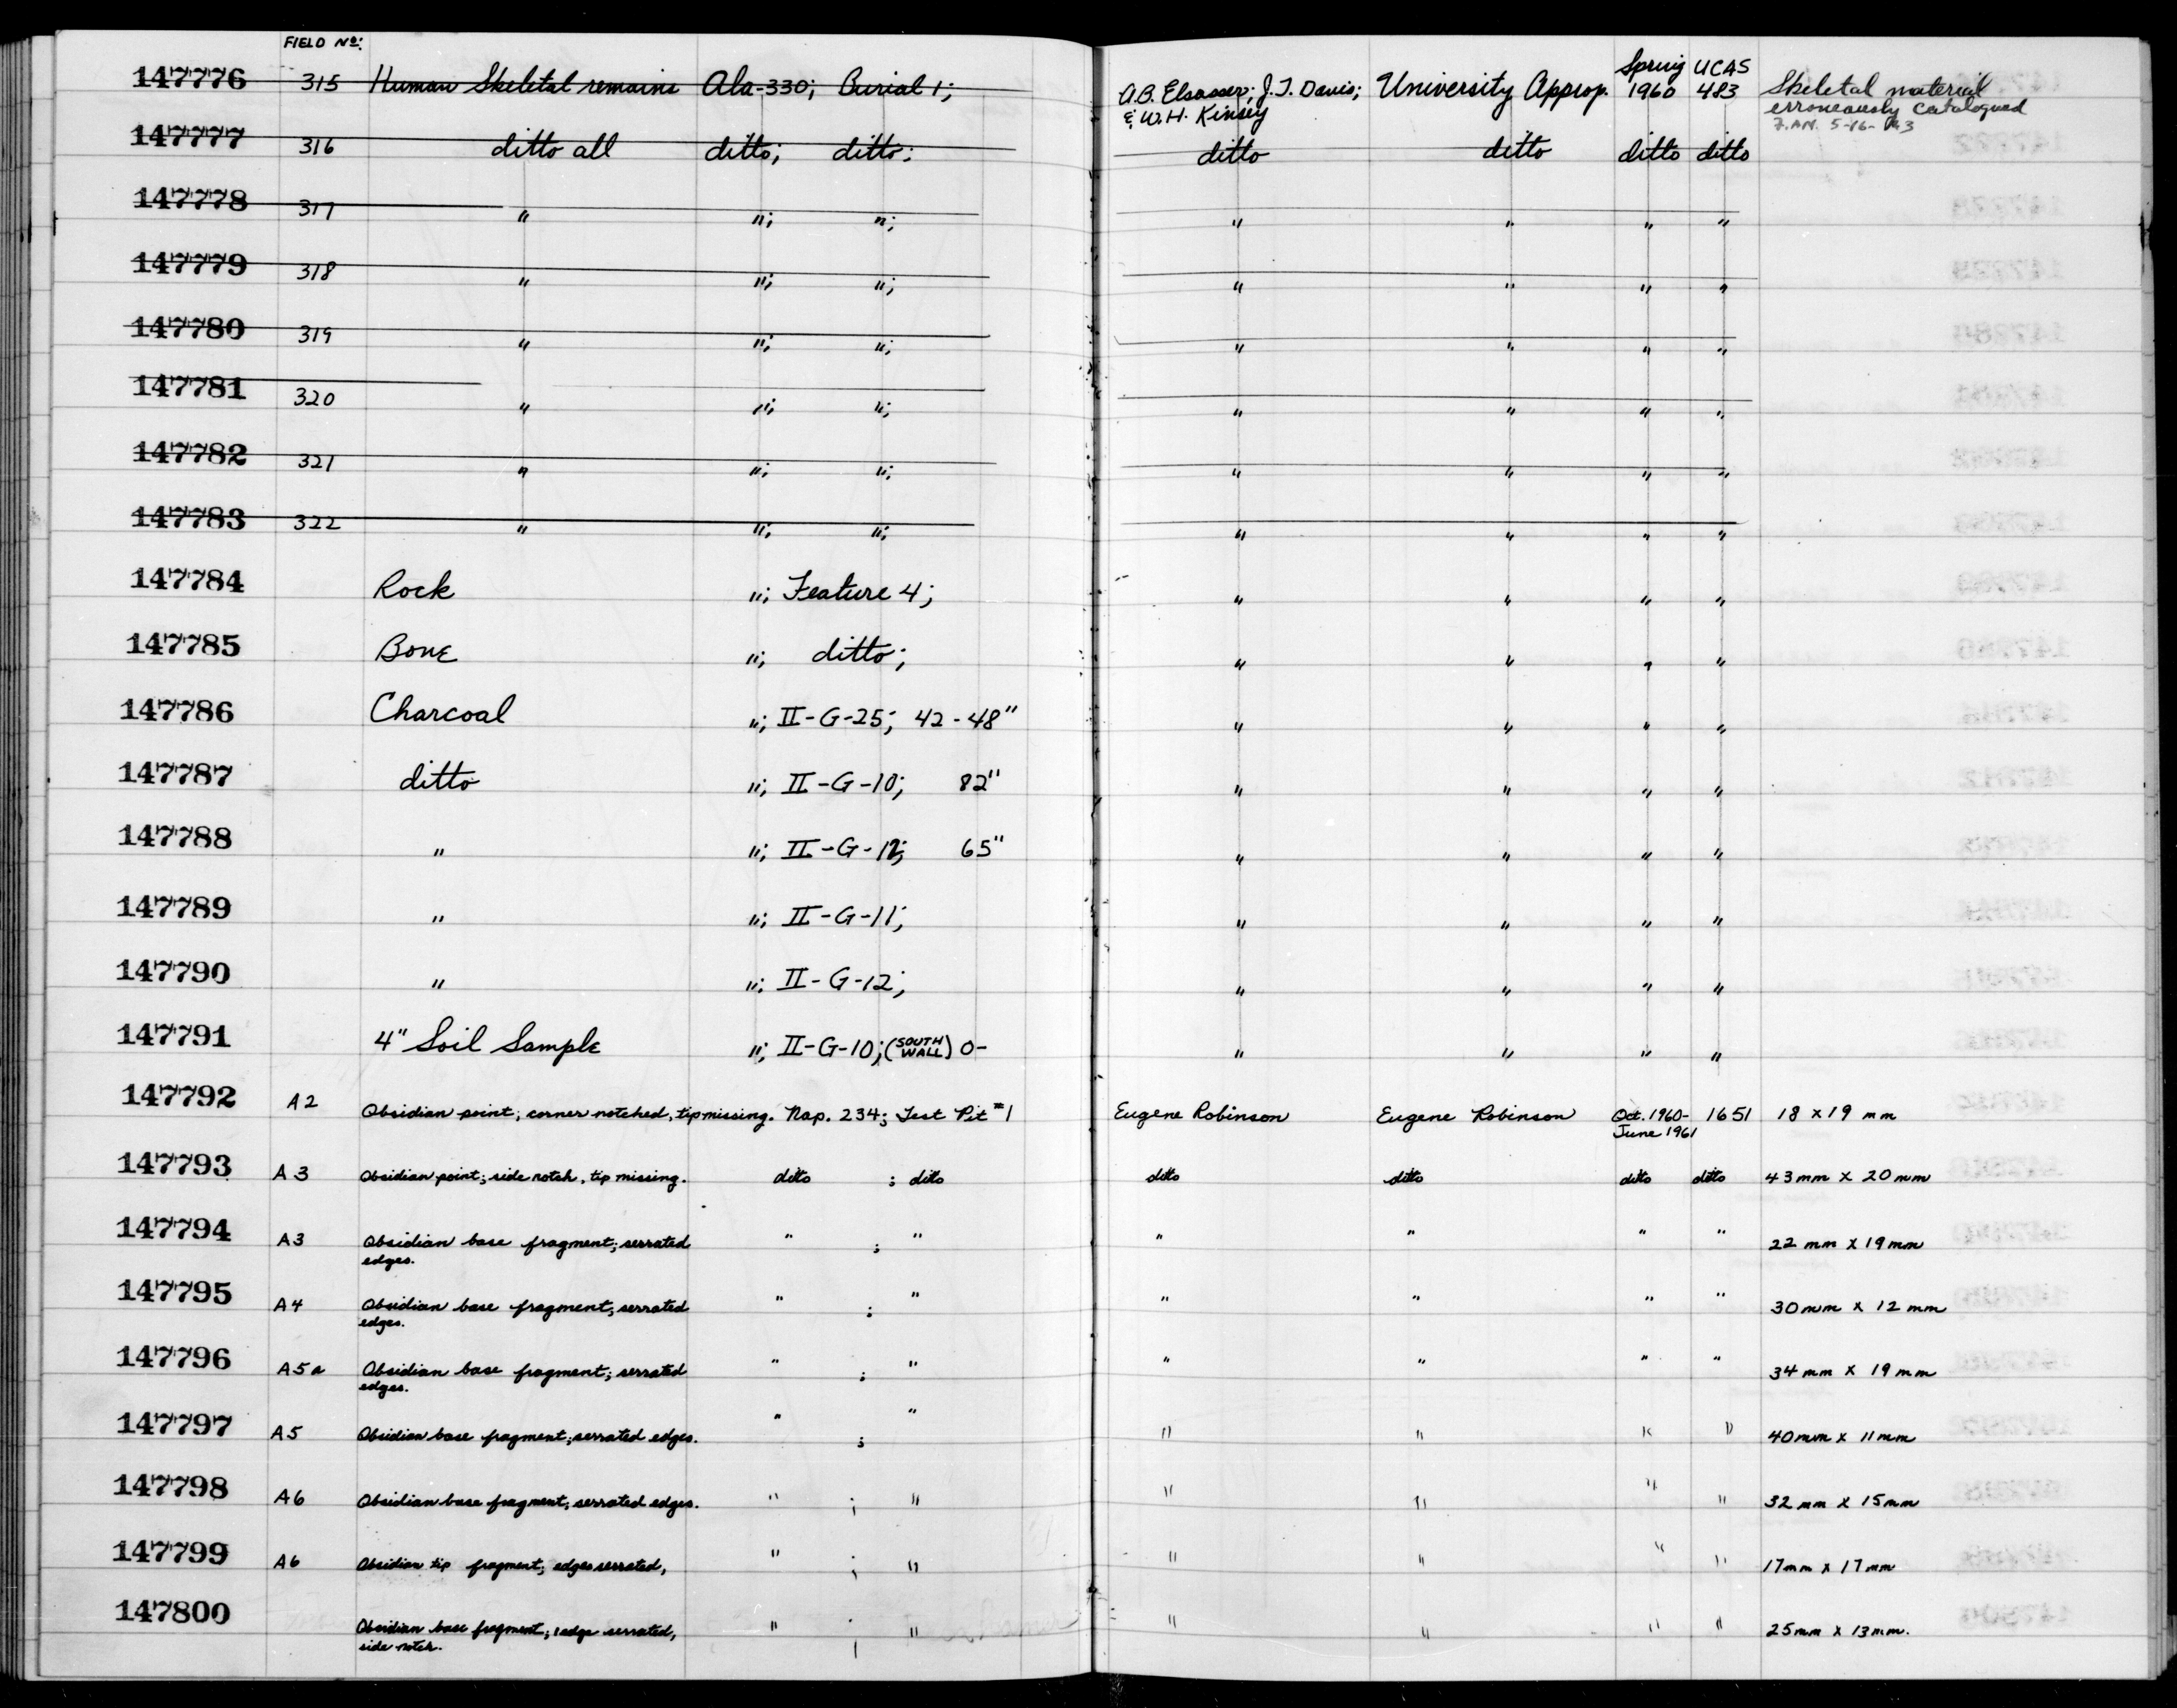 FIELD Nº:
147776 315 Human Skeletal remains Ala-330; Burial 1; A.B. Elsasser; J.T. Davis; & W.H. Kinsey University Approp. Spring 1960 UCAS 483 Skeletal material erroneously catalogued
147777 316 ditto all ditto; ditto; ditto ditto ditto ditto
147778 317 " "; "; " " " "
147779 318 " "; "; " " " "
147780 319 " "; "; " " " "
147781 320 " "; "; " " " "
147782 321 " "; "; " " " "
147783 322 " "; "; " " " "
147784 Rock "; Feature 4; " " " "
147785 Bone "; ditto; " " " "
147786 Charcoal "; II-G-25; 42-48" " " " "
147787 ditto "; II-G-10; 82" " " " "
147788 " "; II-G-12; 65" " " " "
147789 " "; II-G-11; " " " "
147790 " "; II-G-12; " " " "
147791 4" Soil Sample "; II-G-10; (SOUTH WALL) 0- " " " "
147792 A2 Obsidian point; corner notched, tip missing. Nap. 234; Test Pit #1 Eugene Robinson Eugene Robinson Oct. 1960- June 1961 1651 18 x 19 mm
147793 A3 Obsidian point; side notch, tip missing. ditto ; ditto ditto ditto ditto ditto 43mm x 20mm
147794 A3 Obsidian base fragment; serrated edges. " ; " " " " " 22 mm x 19mm
147795 A4 Obsidian base fragment; serrated edges. " ; " " " " " 30mm x 12 mm
147796 A5a Obsidian base fragment; serrated edges. " ; " " " " " 34 mm x 19 mm
147797 A5 Obsidian base fragment; serrated edges. " ; " " " " " 40mm x 11mm
147798 A6 Obsidian base fragment; serrated edges. " ; " " " " " 32 mm x 15mm
147799 A6 Obsidian tip fragment; edges serrated, " ; " " " " " 17mm x 17mm
147800 Obsidian base fragment; 1 edge serrated, side notch. " ; " " " " " 25mm x 13mm.